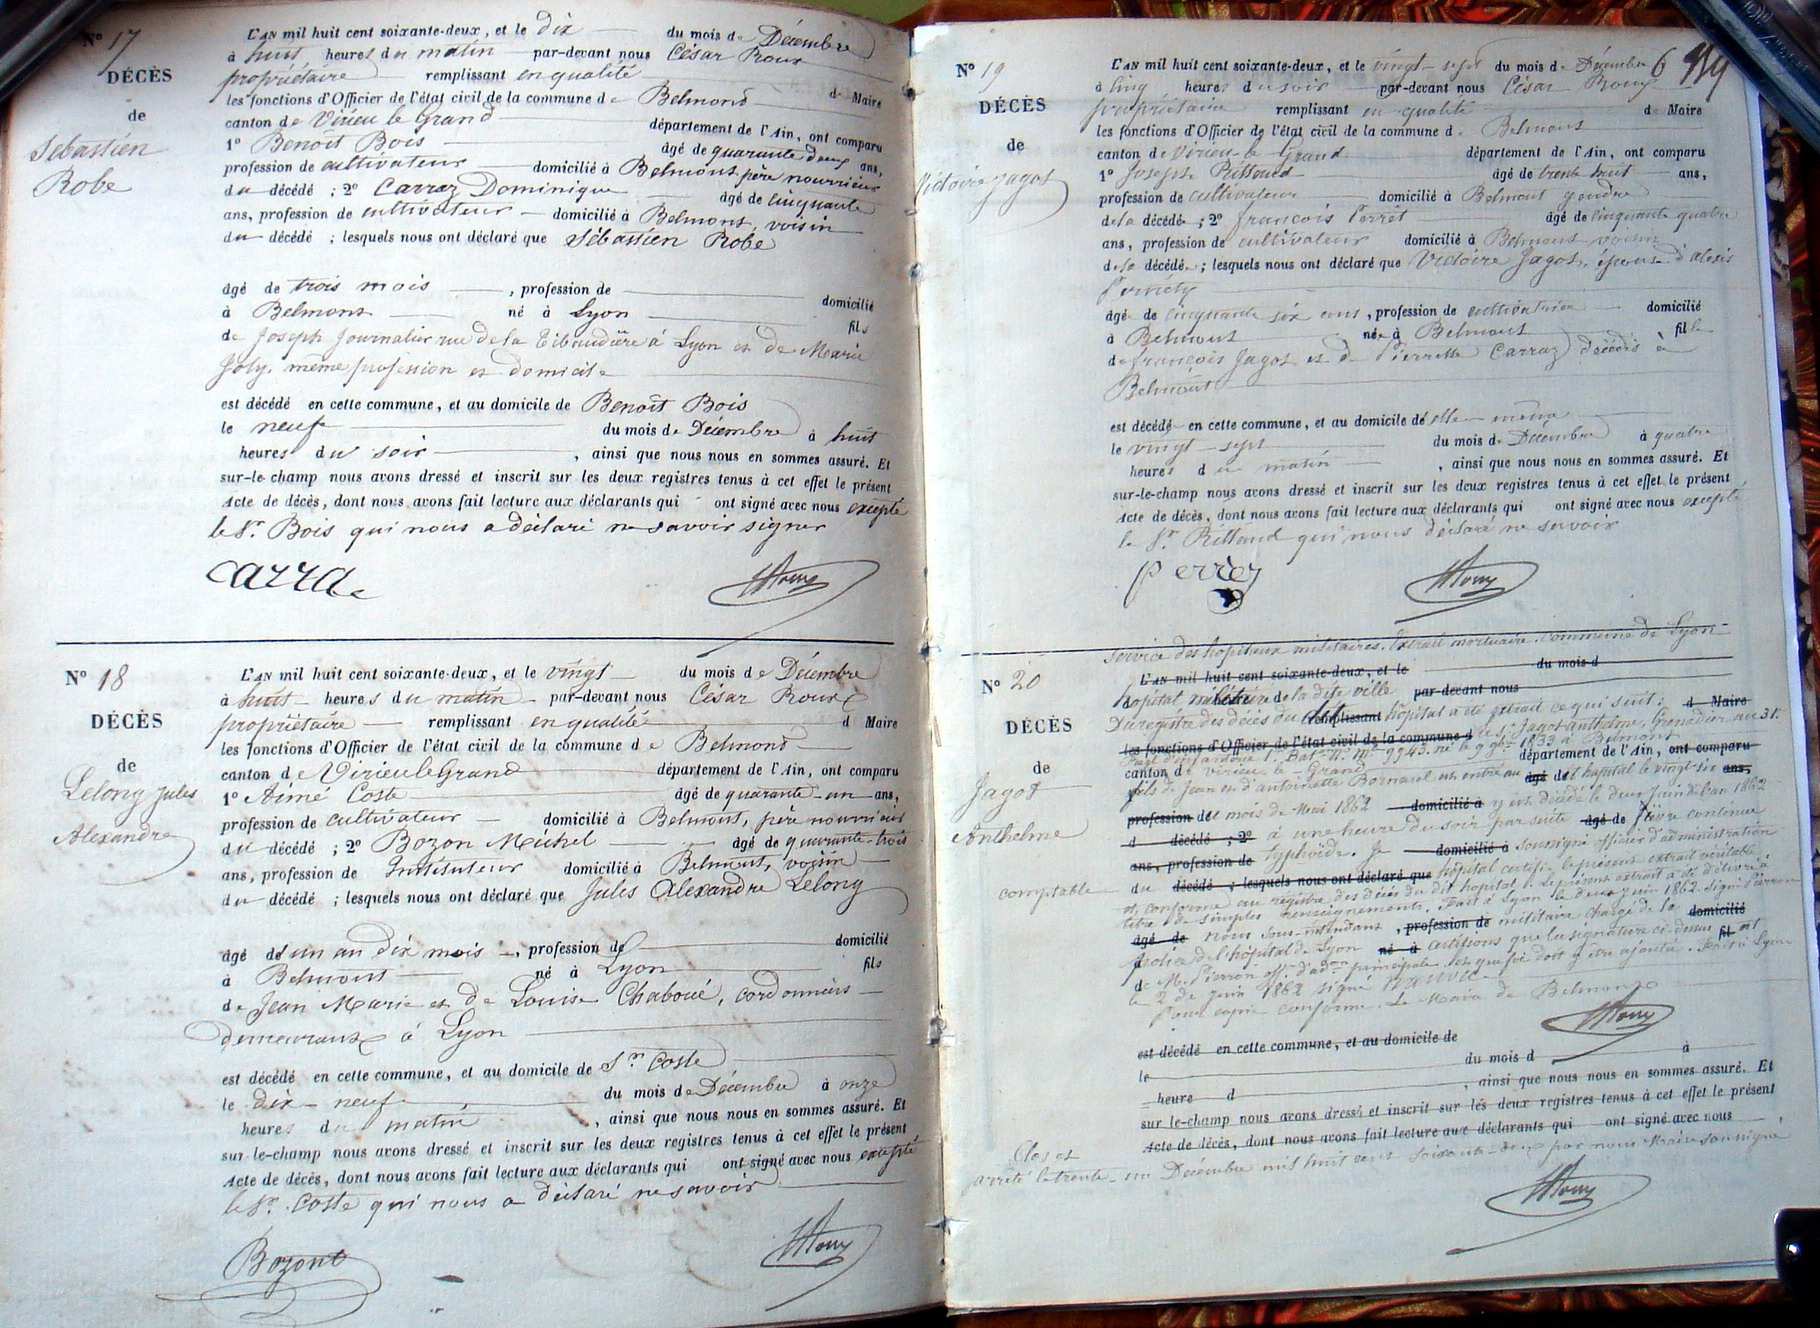 N° 17
DÉCÈS
de
Sébastien
Robe
L'AN mil huit cent soixante-deux, et le dix du mois de Décembre
à huit heures du matin par-devant nous César Roux
propriétaire remplissant en qualité
les fonctions d'Officier de l'état civil de la commune de Belmond de Maire
canton de Virieu le Grand département de l'Ain, ont comparu
1° Benoît Bois âgé de quarante deux ans,
profession de cultivateur domicilié à Belmont, père nourricier
du décédé ; 2° Carraz Dominique âgé de cinquante
ans, profession de cultivateur domicilié à Belmont, voisin
du décédé ; lesquels nous ont déclaré que Sébastien Robe
âgé de trois mois , profession de domicilié
à Belmont né à Lyon fils
de Joseph Journalier rue de la Tibaudière à Lyon et de Marie
Joly, même profession et domicile
est décédé en cette commune, et au domicile de Benoît Bois
le neuf du mois de Décembre à huit
heures du soir , ainsi que nous nous en sommes assuré. Et
sur-le-champ nous avons dressé et inscrit sur les deux registres tenus à cet effet le présent
Acte de décès, dont nous avons fait lecture aux déclarants qui ont signé avec nous excepté
le Sr. Bois qui nous a déclaré ne savoir signer
carra
Roux
N° 18
DÉCÈS
de
Lelong Jules
Alexandre
L'AN mil huit cent soixante-deux, et le vingt du mois de Décembre
à huit heures du matin par-devant nous César Roux
propriétaire remplissant en qualité d Maire
les fonctions d'Officier de l'état civil de la commune de Belmond
canton de Virieu le Grand département de l'Ain, ont comparu
1° Aimé Coste âgé de quarante-un ans,
profession de cultivateur domicilié à Belmont, père nourricier
du décédé ; 2° Bozon Michel âgé de quarante-trois
ans, profession de Instituteur domicilié à Belmont, voisin
du décédé ; lesquels nous ont déclaré que Jules Alexandre Lelong
âgé de un an dix mois , profession de domicilié
à Belmont né à Lyon fils
de Jean Marie et de Louise Chaboué, cordonniers
demeurant à Lyon
est décédé en cette commune, et au domicile de Sr. Coste
le dix-neuf du mois de Décembre à onze
heures du matin , ainsi que nous nous en sommes assuré. Et
sur-le-champ nous avons dressé et inscrit sur les deux registres tenus à cet effet le présent
Acte de décès, dont nous avons fait lecture aux déclarants qui ont signé avec nous excepté
le Sr. Coste qui nous a déclaré ne savoir
Bozont
Roux
6
N° 19
DÉCÈS
de
Victoire Jagot
L'AN mil huit cent soixante-deux, et le vingt-sept du mois de Décembre
à cinq heures du soir par-devant nous César Roux
propriétaire remplissant en qualité de Maire
les fonctions d'Officier de l'état civil de la commune d. Belmont
canton de Virieu-le-Grand département de l'Ain, ont comparu
1° Joseph Rittaud âgé de trente huit ans,
profession de cultivateur domicilié à Belmont gendre
de la décédée ; 2° François Perret âgé de cinquante quatre
ans, profession de cultivateur domicilié à Belmont voisin
de la décédée ; lesquels nous ont déclaré que Victoire Jagot, épouse d'Alexis
âgée de cinquante six ans, profession de cultivatrice domicilié
à Belmont née à Belmont fille
de François Jagot et de Pierrette Carraz décédés à
Belmont
est décédée en cette commune, et au domicile de elle-même
le vingt-sept du mois de Décembre à quatre
heures du matin , ainsi que nous nous en sommes assuré. Et
sur-le-champ nous avons dressé et inscrit sur les deux registres tenus à cet effet le présent
Acte de décès, dont nous avons fait lecture aux déclarants qui ont signé avec nous excepté
le Sr. Rittaud qui nous déclaré ne savoir
perret
Roux
N° 20
DÉCÈS
de
Jagot
Anthelme
Service des hôpitaux militaires. Extrait mortuaire. Commune de Lyon
L'AN mil huit cent soixante-deux, et le du mois d
hôpital militaire de la dite ville par-devant nous
Du registre des décès du dit remplissant hôpital a été extrait ce qui suit : d Maire
les fonctions d'Officier de l'état civil de la commune d Jagot Anthelme, Grenadier au 31e
canton de Virieu-le-Grand département de l'Ain, ont comparu
fils de Jean et d'Antoinette est entré au âgé de dit hôpital le vingt-six ans,
profession de du mois de Mai 1862 domicilié à y est décédé le deux Juin de l'an 1862
d décédé ; 2° à une heure du soir par suite âgé de fièvre continue
ans, profession de typhoïde. Je domicilié à soussigné officier d'administration
comptable du décédé ; lesquels nous ont déclaré que hôpital certifie le présent extrait véritable
et conforme au registre des décès du dit hôpital. Le présent extrait a été délivré à
titre de simples renseignements. Fait à Lyon le deux juin 1862. Signé Pierron
âgé de Nous sous-intendant , profession de militaire chargé de la domicilié
police de l'hôpital de Lyon né à certifions que la signature ci-dessus fil est
de M. Pierron offr. d'adon. principale et que foi doit y être ajoutée. Fait à Lyon
le 2 de Juin 1862 signé
Pour copie conforme. Le Maire de Belmont
Roux
est décédé en cette commune, et au domicile de
le du mois d à
heure d , ainsi que nous nous en sommes assuré. Et
sur-le-champ nous avons dressé et inscrit sur les deux registres tenus à cet effet le présent
Acte de décès, dont nous avons fait lecture aux déclarants qui ont signé avec nous
Clos et
arrêté le trente-un Décembre mil huit cent soixante-deux par nous Maire soussigné
Roux